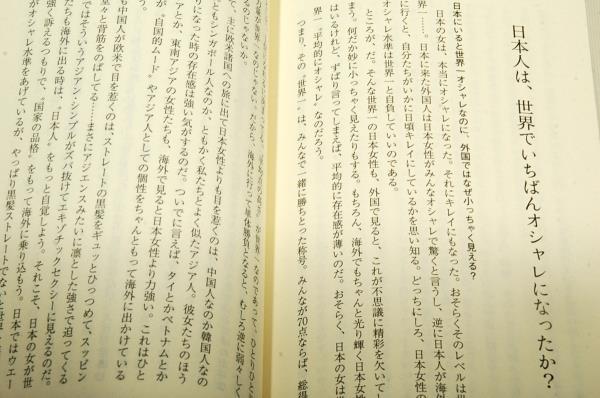 日本人は、世界でいちばんオシャレになったか?
日本にいると世界一オシャレなのに、外国ではなぜ小っちゃく見える?
日本の女は、本当にオシャレになった。それにキレイにもなった。おそらくそのレベルは世
界一……。日本に来た外国人は日本女性がみんなオシャレで驚くと言うし、逆に日本人が海外
に行くと、自分たちがいかに日頃キレイにしているかを思い知る。どっちにしろ、日本女性の
オシャレ水準は世界一と自負していいのである。
ところが、だ。そんな世界一の日本女性も、外国で見ると、これが不思議に精彩を欠いてし
まう。何だか妙に小っちゃく見えたりもする。もちろん、海外でもちゃんと光り輝く日本女性
はいるけれど、ずばり言ってしまえば、平均的に存在感が薄いのだ。おそらく、日本の女は世
界一“平均的にオシャレ”なのだろう。
つまり、その“世界一”は、みんなで一緒に勝ちとった称号。みんなが70点ならば、総得
が世界一なのであって、ひとりひと
海外に行って単体勝負になると、むしろ逆に弱々しく
るのじゃないか。
て、主に欧米諸国への旅に出て日本女性よりも目を惹くのは、中国人なのか韓国人なの
ともシンガポール人なのか、ともかく私たちとよく似たアジア人。彼女たちのほう
りになった時の存在感は強い気がするのだ。ついでに言えば、タイとかベトナムとか
アとか、東南アジアの女性たちも、海外で見ると日本女性より力強い。これはひと
が、“自国的ムード”やアジア人としての個性をちゃんともって海外に出かけている
も中国人が欧米で目を惹くのは、ストレートの黒髪をギュッとひっつめて、スッピン
堂々と背筋をのばしてる……まさにアジエンスみたいに凛とした強さで迫ってくる
ではそういうアジアン・シンプルがズバ抜けてエキゾチックセクシーに見えるのだ。
たちも海外に出る時は、“日本人”をもっと自覚しよう。それこそ、日本の女が世
強く訴えるつもりで、“国家の品格”をもって海外に乗り込もう。日本ではウエー
がオシャレ水準をあげているが、やっぱり黒髪ストレートでないと